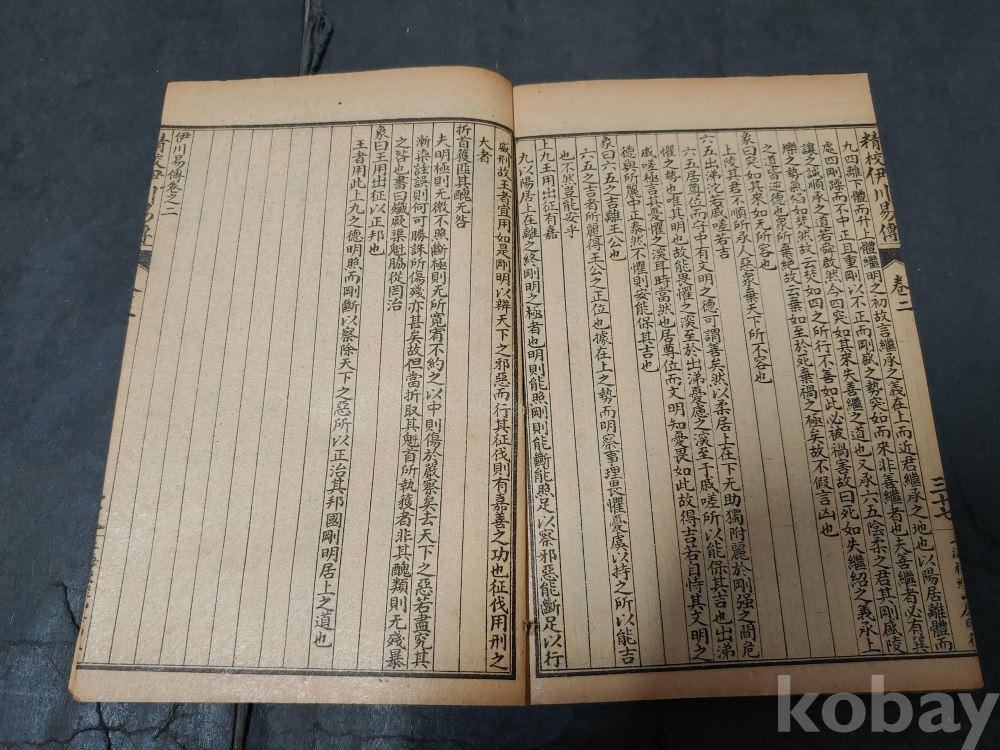 精校伊川易傳 卷二 三七
九四離下體而升上體繼明之初故言繼承之義在上而近君繼承之地也以陽居離體而
處四剛躁而不中正且重剛以不正而剛盛之勢突如而來非善繼者也夫善繼者必有巽
讓之誠順承之道若舜啟然今四突如其來失善繼之道也又承六五陰柔之君其剛盛陵
爍之勢氣焰如焚然故云焚如四之所行不善如此必被禍害故曰死如失繼紹之義承上
之道皆逆德也衆所棄絕故云棄如至於死棄禍之極矣故不假言凶也
象曰突如其來如无所容也
上陵其君不順所承人惡衆棄天下所不容也
六五出涕沱若戚嗟若吉
六五居尊位而守中有文明之德可謂善矣然以柔居上在下无助獨附麗於剛强之間危
懼之勢也唯其明也故能畏懼之深至於出涕憂慮之深至于戚嗟所以能保其吉也出涕
戚嗟極言其憂懼之深耳時當然也居尊位而文明知憂畏如此故得吉若自恃其文明之
德與所麗中正泰然不懼則安能保其吉也
象曰六五之吉離王公也
六五之吉者所麗得王公之正位也據在上之勢而明察事理畏懼憂虞以持之所以能吉
也不然豈能安乎
上九王用出征有嘉
九以陽居上在離之終剛明之極者也明則能照剛則能斷能照足以察邪惡能斷足以行
威刑故王者宜用如是剛明以辨天下之邪惡而行其征伐則有嘉善之功也征伐用刑之
大者
折首獲匪其醜无咎
夫明極則无微不照斷極則无所寬宥不約之以中則傷於嚴察矣去天下之惡若盡究其
漸染詿誤則何可勝誅所傷殘亦甚矣故但當折取其魁首所執獲者非其醜類則无殘暴
之咎也書曰殲厥渠魁脇從罔治
象曰王用出征以正邦也
王者用此上九之德明照而剛斷以察除天下之惡所以正治其邦國剛明居上之道也
伊川易傳卷之二
kobay